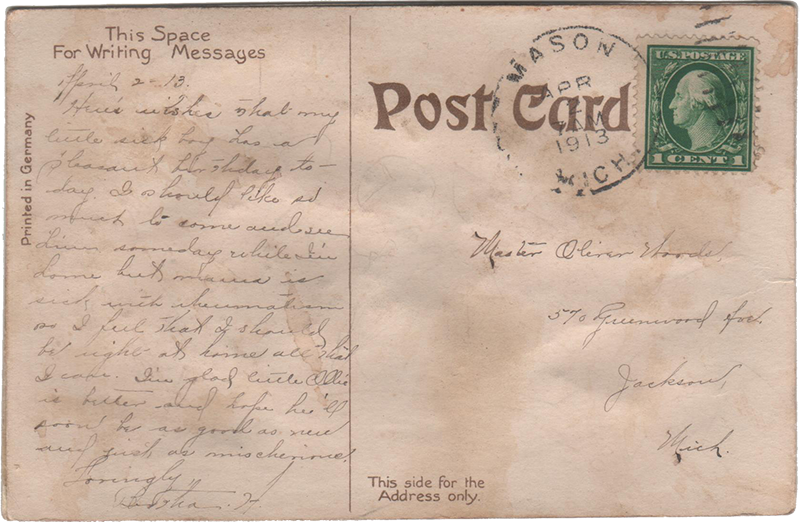 This Space
For Writing Messages
Printed in Germany
April 2 - 13.
Here's wishes that my
little sick boy has a
pleasant birthday to-
day. I should like so
much to come and see
him someday while I'm
home but mama is
sick with rheumatism
so I feel that I should
be right at home all that
I can. I'm glad little Ollie
is better and hope he'll
soon be as good as new
and just as mischievous.
Lovingly,
Post Card
MASON
APR
1913
MICH.
U.S. POSTAGE
1 CENT 1
Master Oliver Woods,
570 Greenwood Ave.
Jackson,
Mich.
This side for the
Address only.